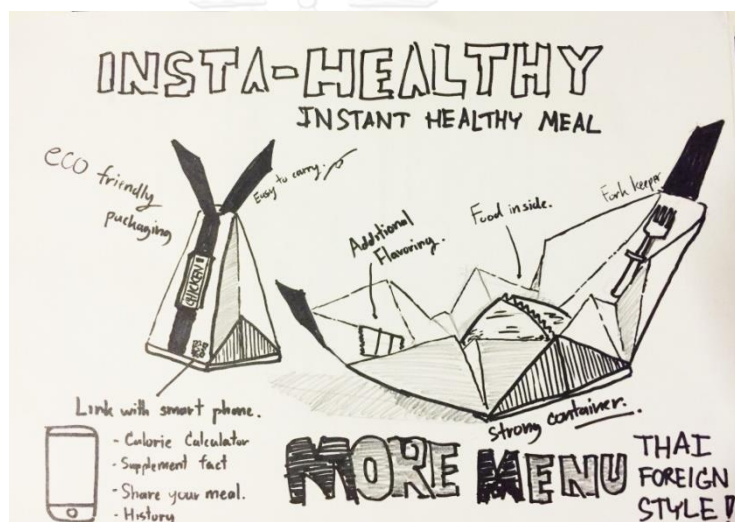 INSTA-HEALTHY
INSTANT HEALTHY MEAL
eco friendly
packaging
Easy to carry.
CHICKEN
Additional
Flavoring.
Food inside.
Fork keeper
Link with smart phone.
- Calorie Calculator
- Supplement fact
- Share your meal.
- History
strong container.
MORE MENU
THAI
FOREIGN
STYLE!